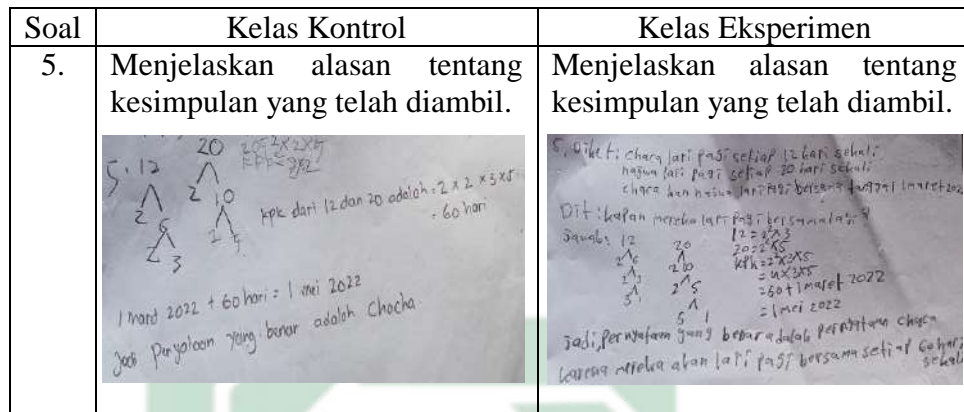 Soal Kelas Kontrol Kelas Eksperimen
5. Menjelaskan alasan tentang
kesimpulan yang telah diambil.
Menjelaskan alasan tentang
kesimpulan yang telah diambil.
5. 12 20 20=2x2x5
2 6 2 10
2 3 2 5
kpk dari 12 dan 20 adalah = 2 x 2 x 3 x 5
= 60 hari
1 mard 2022 + 60 hari = 1 mei 2022
jadi Peryataan yang benar adalah Chacha
5. Diket: chaca lari pagi setiap 12 hari sekali
najwa lari pagi setiap 20 hari sekali
chaca dan najwa lari pagi bersama tanggal 1 maret 202
Dit: kapan mereka lari pagi bersama lagi?
Jawab: 12 20
2 6 2 10
2 3 2 5
3 1 5 1
20=2²x5
= 4x3x5
= 60 + 1 maret 2022
= 1 mei 2022
Jadi, pernyataan yang benar adalah pernyataan chaca
karena mereka akan lari pagi bersama setiap 60 hari
sekali